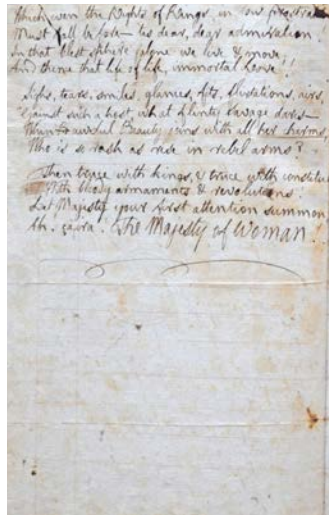 Which even the Rights of Kings, in low prostrat
Must fall before — 'tis dear, dear admiration!
In that blest sphere alone we live & move,
And there that life of life, immortal Love!!
Sighs, tears, smiles, glances, fits, flirtations, airs,
'gainst such a host what flinty savage dares —
When awful Beauty joins with all her charms,
Who is so rash as rise in rebel arms?
Then truce with kings, & truce with constitu
With bloody armaments & revolutions!
Let Majesty your first attention summon
Ah, caira. The Majesty of Woman!